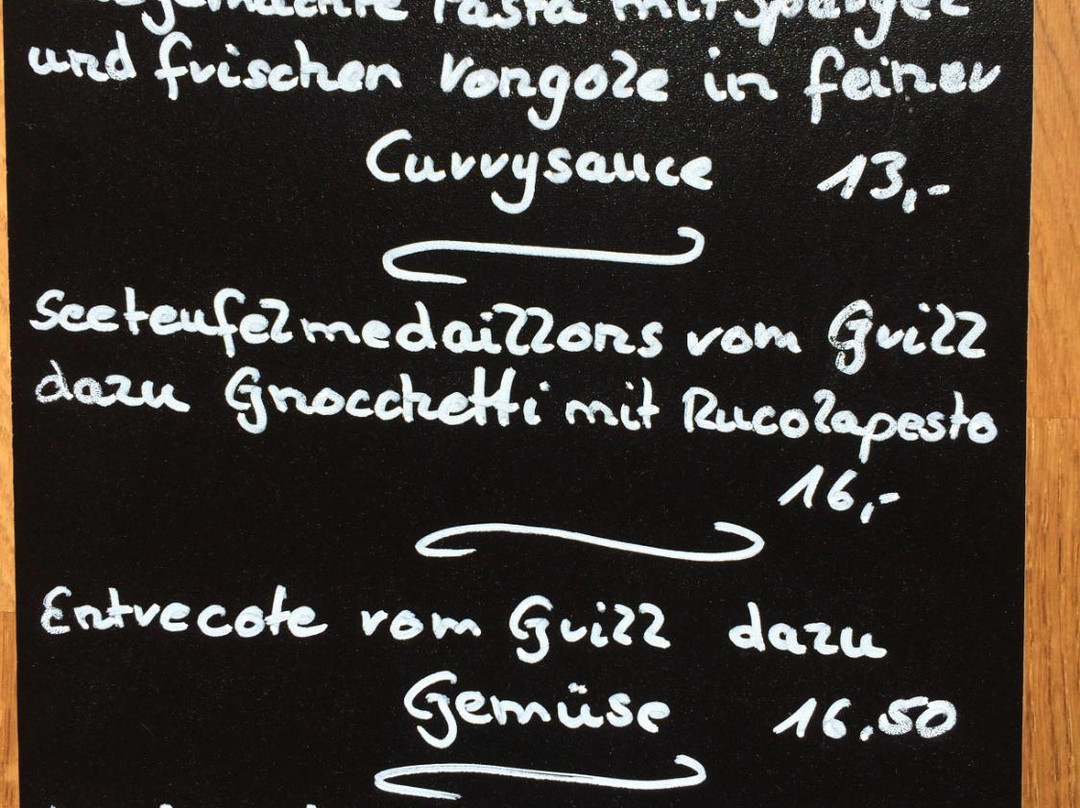 Pasta mit Spargel
und frischen Vongole in feiner
Currysauce 13,-
Seeteufelmedaillons vom Grill
dazu Gnocchetti mit Rucolapesto
16,-
Entrecote vom Grill dazu
Gemüse 16,50